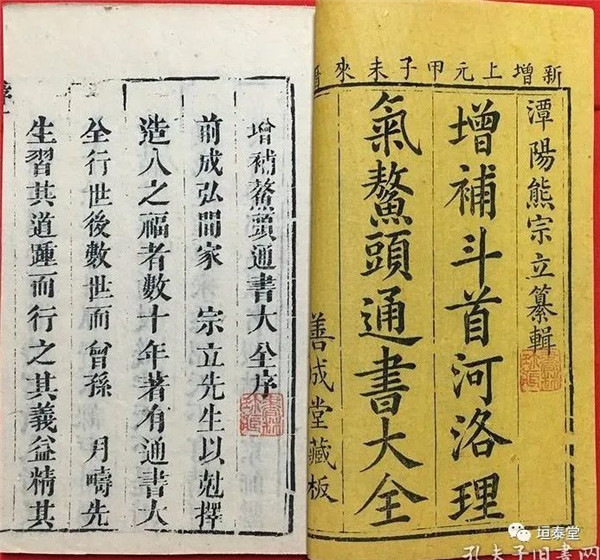 新增上元甲子未來曆
潭陽熊宗立纂輯
增補斗首河洛理
氣鰲頭通書大全
善成堂藏板
增補鰲頭通書大全序
前成弘間家 宗立先生以尅擇
造人之福者數十年著有通書大
全行世後數世而曾孫 月疇先
生習其道踵而行之其義益精其
垣泰堂
孔夫子旧書网